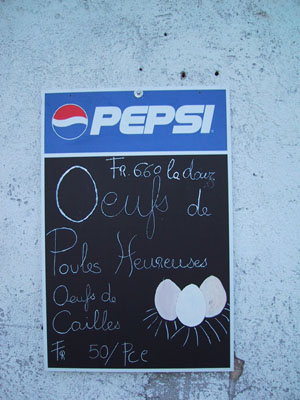 PEPSI
Fr. 660 la douz
Oeufs de
Poules Heureuses
Oeufs de
Cailles
Fr 50/Pce